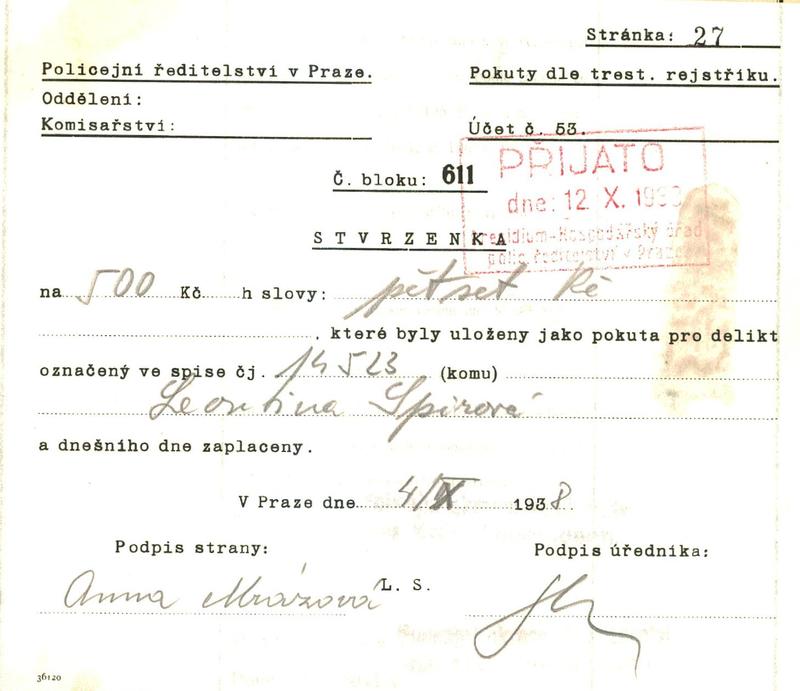 Stránka: 27
Policejní ředitelství v Praze.
Pokuty dle trest. rejstříku.
Oddělení:
Komisařství:
Účet č. 53.
PŘIJATO
Č. bloku: 611
dne: 12 X. 193
STVRZENKA
presidium-Hospodářský úřad
polic. ředitelství v Praze
na 500 Kč h slovy: pětset Kč
, které byly uloženy jako pokuta pro delikt
označený ve spise čj. 14523 (komu)
Leontina Spirová
a dnešního dne zaplaceny.
V Praze dne 4/X 1938.
Podpis strany:
Podpis úředníka:
Anna Mrázová
L. S.
36120